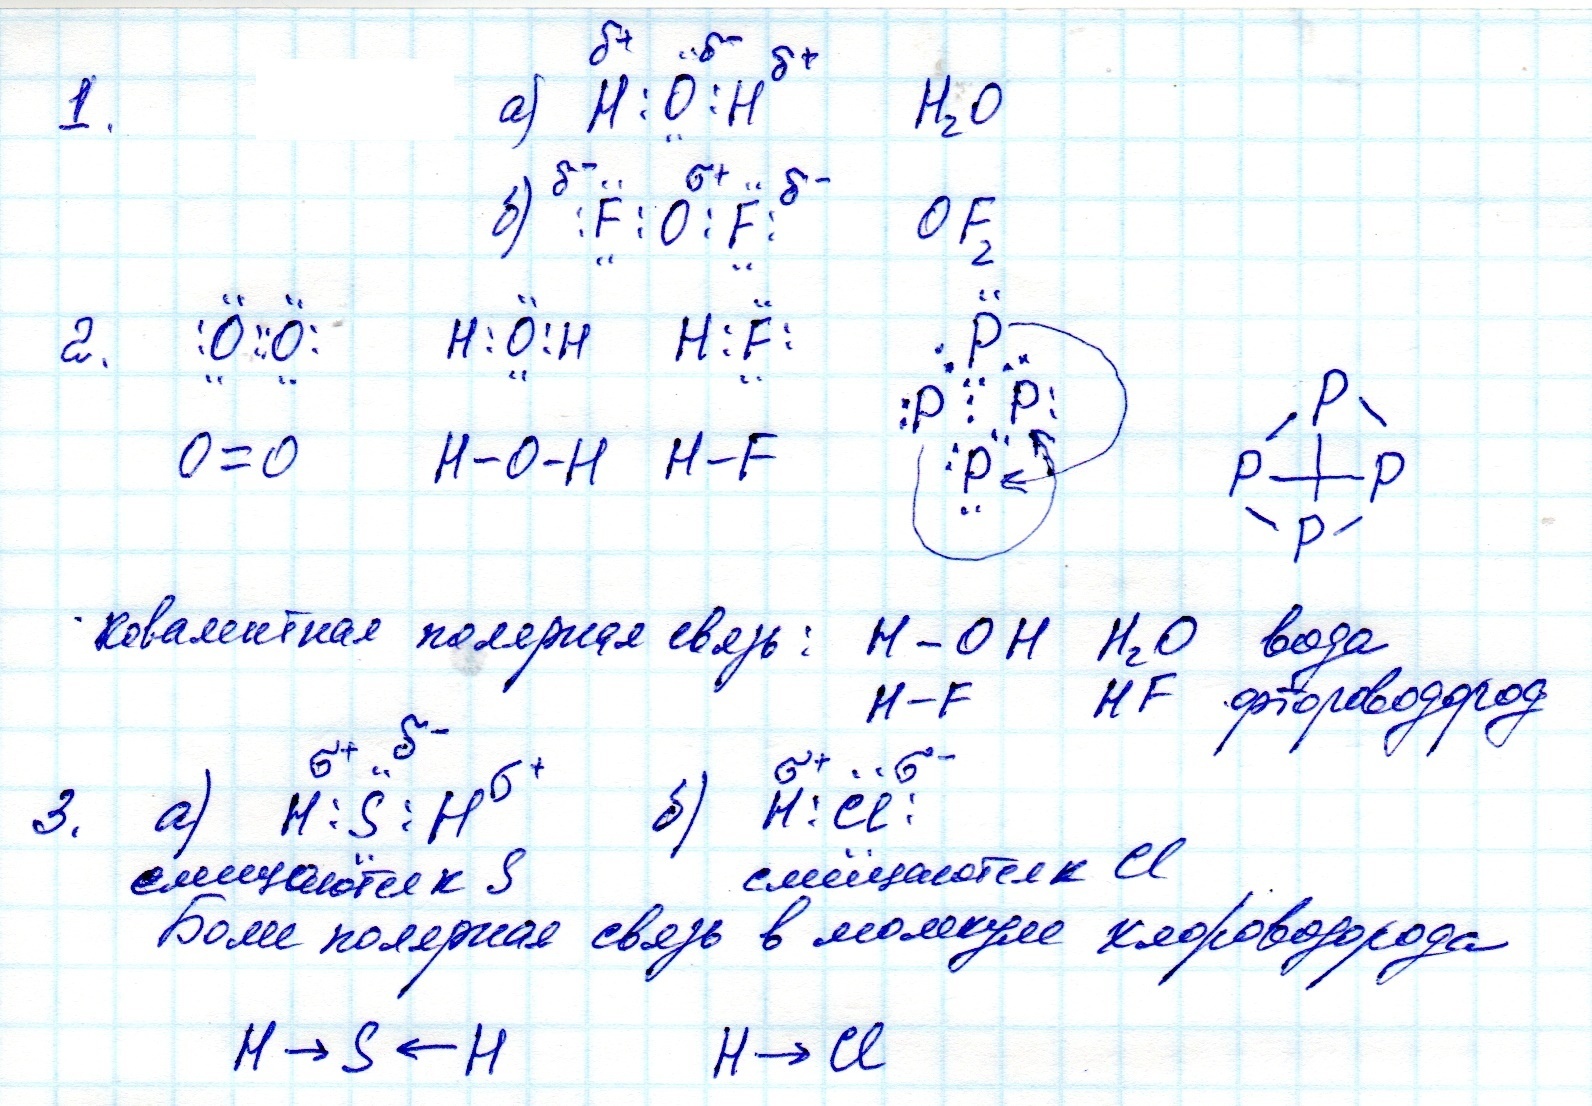 1. а) H : O : H H₂O
δ+ δ- δ+
б) : F : O : F : OF₂
δ- σ+ δ-
2. : O :: O : H : O : H H : F : P P P P
O=O H-O-H H-F P P P P
ковалентная полярная связь : H-OH H₂O вода
H-F HF фтороводород
σ+ δ- σ+ σ+ σ-
3. а) H : S : H б) H : Cl :
смещаются к S смещаются к Cl
Более полярная связь в молекуле хлороводорода
H → S ← H H → Cl